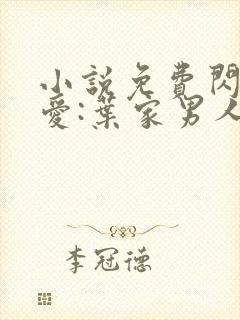 小說免費閃
愛:葉家男人
李冠德